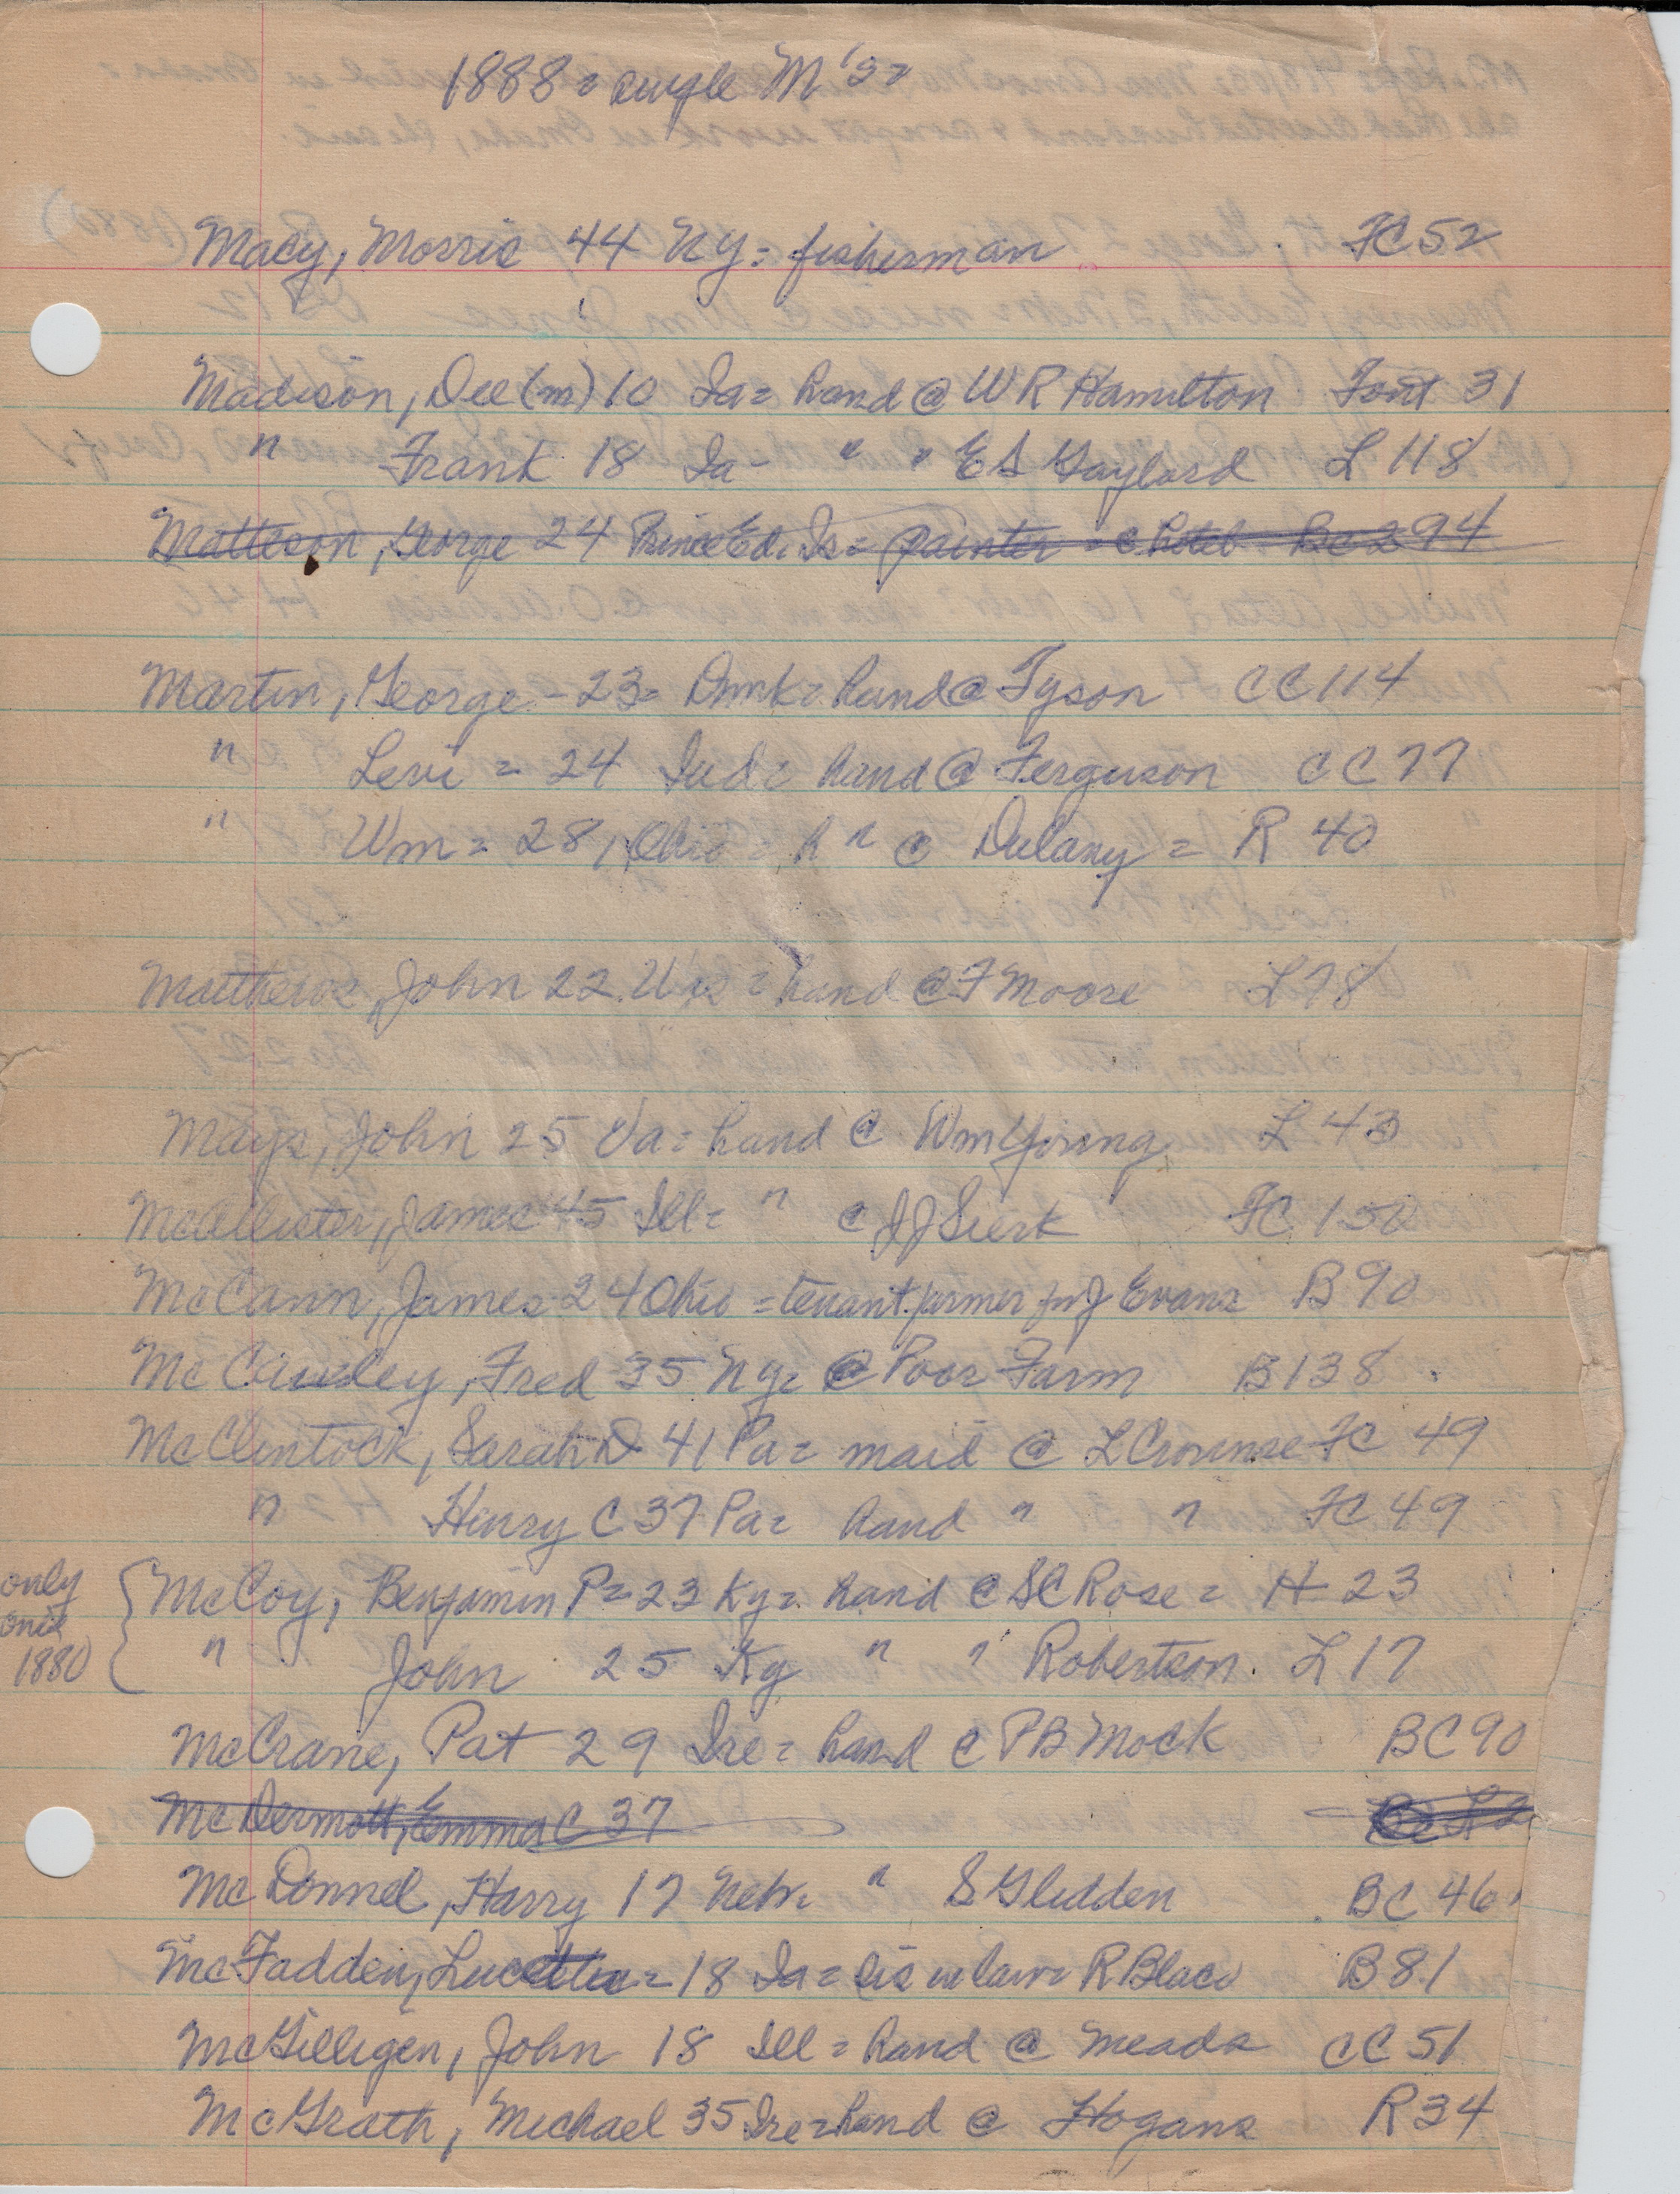 1888 = single M's =
Macy, Morris 44 NY = fisherman FC 52
Madison, Dee (m) 10 Ia = hand @ W R Hamilton Font 31
" Frank 18 Ia - " " E S Gaylord L 118
Matteson, George 24 Prince Ed. Is = painter = @ hotel Bc 294
Martin, George - 23 = Dmk = hand @ Tyson CC 114
" Levi = 24 Ind = hand @ Ferguson CC 77
" Wm = 28, Ohio = h " @ Dulany = R 40
Matthews, John 22 Wis = hand @ F Moore L 78
Mays, John 25 Va = hand @ Wm Young L 43
McAllister, James 45 Ill = " @ J J Sierk FC 150
McCann, James 24 Ohio = tenant farmer for J Evans B 90
McCauley, Fred 35 NY = @ Poor Farm B 138
McClintock, Sarah D 41 Pa = maid @ L Crounse FC 49
" Henry C 37 Pa = hand " " FC 49
only McCoy, Benjamin P = 23 Ky = hand @ S C Rose = H 23
once
1880 " John 25 Ky " " Robertson. L 17
McCrane, Pat 29 Ire = hand @ P B Mock BC 90
McDermott, Emma C 37
McDonnel, Harry 17 Nebr = " S Glidden BC 46
McFadden, Lucetta = 18 Ia = sis in law = R Blaco B 81
McGilligen, John 18 Ill = hand @ Meads CC 51
McGrath, Michael 35 Ire = hand @ Hogans R 34